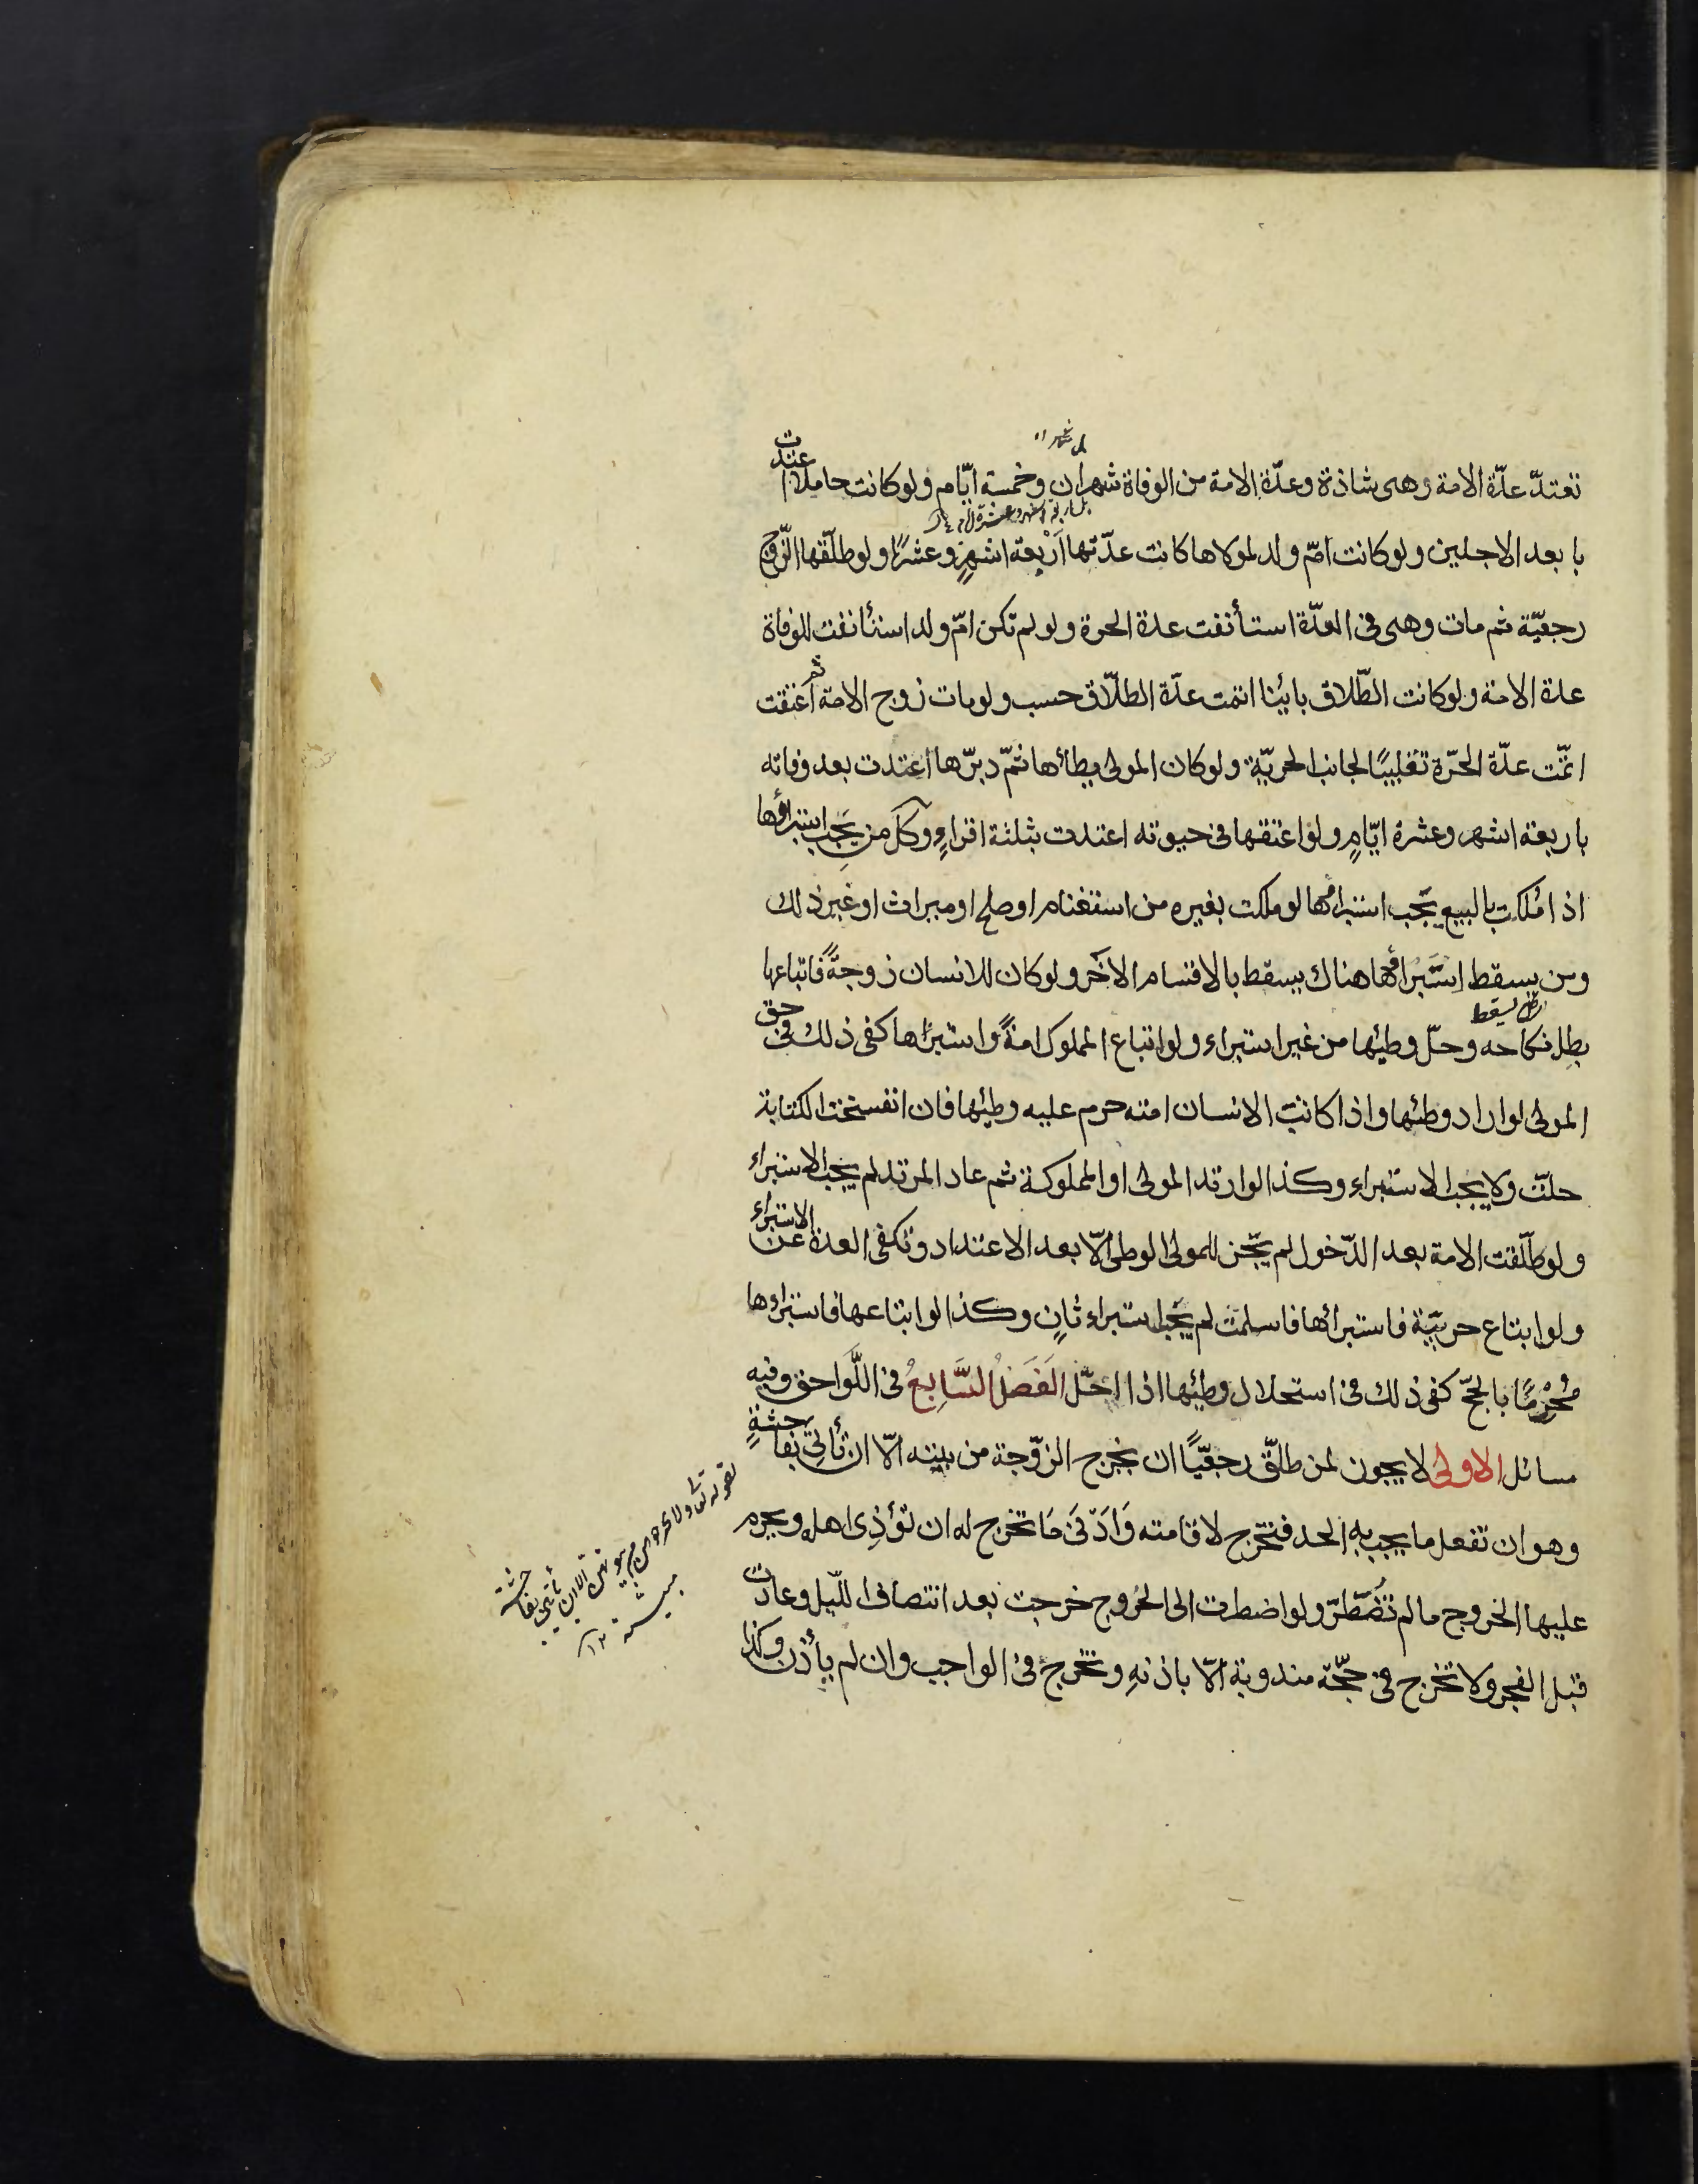 تعتدّ عدّة الامة وهى شاذة وعدّة الامة من الوفاة شهران وخمسة ايّام ولو كانت حاملا اعتدت
بابعد الاجلين ولو كانت امّ ولد لمولاها كانت عدّتها اَرْبعة اشهرٍ وعشرًا ولو طلّقها الزّوج
رجعيّة ثم مات وهى فى العدّة استأنفت عدة الحرة ولو لم تكن امّ ولد استئانفت للوفاة
عدة الامة ولو كانت الطّلاق بائنا اتمت عدّة الطلّاق حسب ولو مات زوج الامة ثم اعتقت
اتمّت عدّة الحرّة تغليبًا لجانب الحريّة ولو كان المولى يطأها ثمّ دبّرها اعتدت بعد وفاته
باربعة اشهر وعشرة ايّامٍ ولو اعتقها فى حيوته اعتدت بثلثة اقراءٍ وكلّ من يَجِب استبراؤها
اذا مُلكت بالبيع يَجب استبراؤها لو ملكت بغيره من استغنام او صلح او ميراث او غير ذلك
ومن يسقط استَبْراؤها هناك يسقط بالاقسام الاخَر ولو كان للانسان زوجةً فابتاعها
بطل نكاحه وحلّ وطيُها من غير استبراء ولو ابتاع المملوك امةً واستبرَاها كفى ذلك فى حق
المولى لو اراد وطئها واذا كاتب الانسان امته حرم عليه وطئها فان انفسخت الكتابة
حلّت ولا يجب الاستبراء وكذا لو ارتد المولى او المملوكة ثم عاد المرتد لم يجب الاستبراء
ولو طلّقت الامة بعد الدّخول لم يَجز للمولى الوطى الّا بعد الاعتداد وتكفى العدة عن الاستبراء
ولو ابتاع حربيّة فاستبرأها فاسلمت لم يَجب استبراء ثانٍ وكذا لو ابتاعها فاستبراءها
مُحْرِمًا بالحجّ كفى ذلك فى استحلال وطئها اذا احَلّ الفَصلُ السَّابِعُ فى اللَّواحق وفيه
مسائل الاولى لا يجوز لمن طلّق رجعيًّا ان يخرج الزّوجة من بيته الّا ان تأتى بفاحشةٍ
وهو ان تفعل ما يجب بِهِ الحد فتخرج لاقامته وَادَنَى مَا تخرج له ان تؤذِى اهله ويحرم
عليها الخروج ما لم تُضْطَرّ ولو اضطرت الى الخُروج خرجت بعد انتصاف اللّيل وعادت
قبل الفجر ولا تخرج فى حجّة مندوبة الّا باذنهِ وتخرج فى الواجب وان لم يأذن وكذا
لقوله تعالى ولا يخرجن من بيوتهن الا ان يأتين بفاحشة
مبينة ١٢